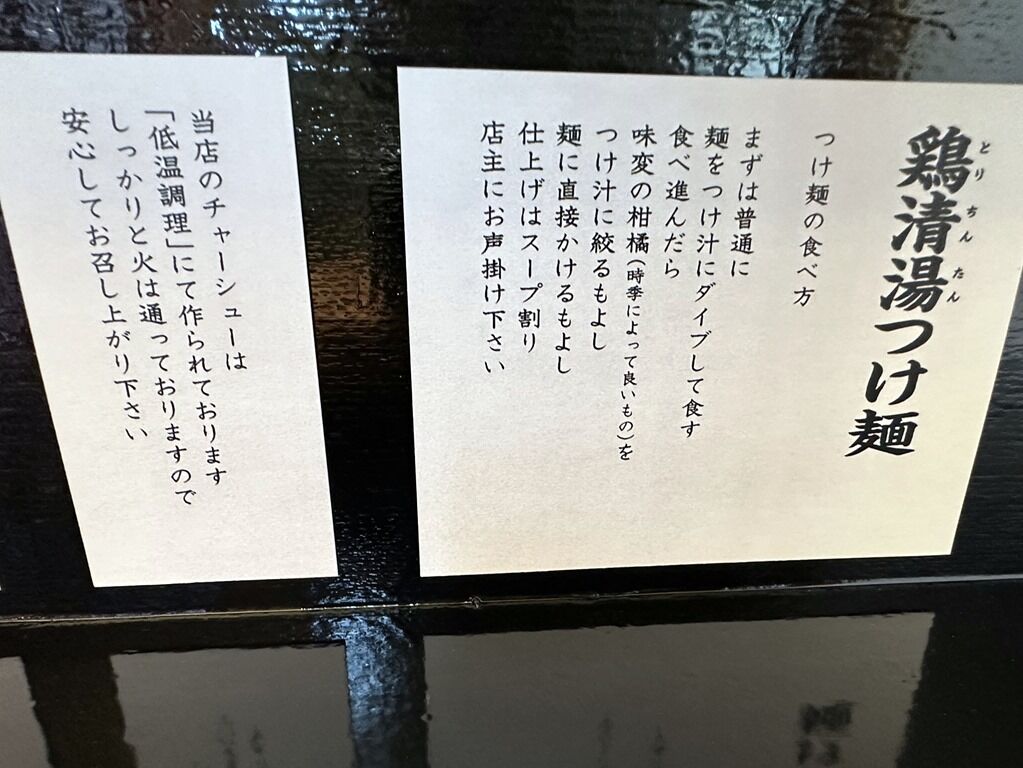 鶏清湯つけ麺
とりちんたん
つけ麺の食べ方
まずは普通に
麺をつけ汁にダイブして食す
食べ進んだら
味変の柑橘(時季によって良いもの)を
つけ汁に絞るもよし
麺に直接かけるもよし
仕上げはスープ割り
店主にお声掛け下さい
当店のチャーシューは
「低温調理」にて作られております
しっかりと火は通っておりますので
安心してお召し上がり下さい